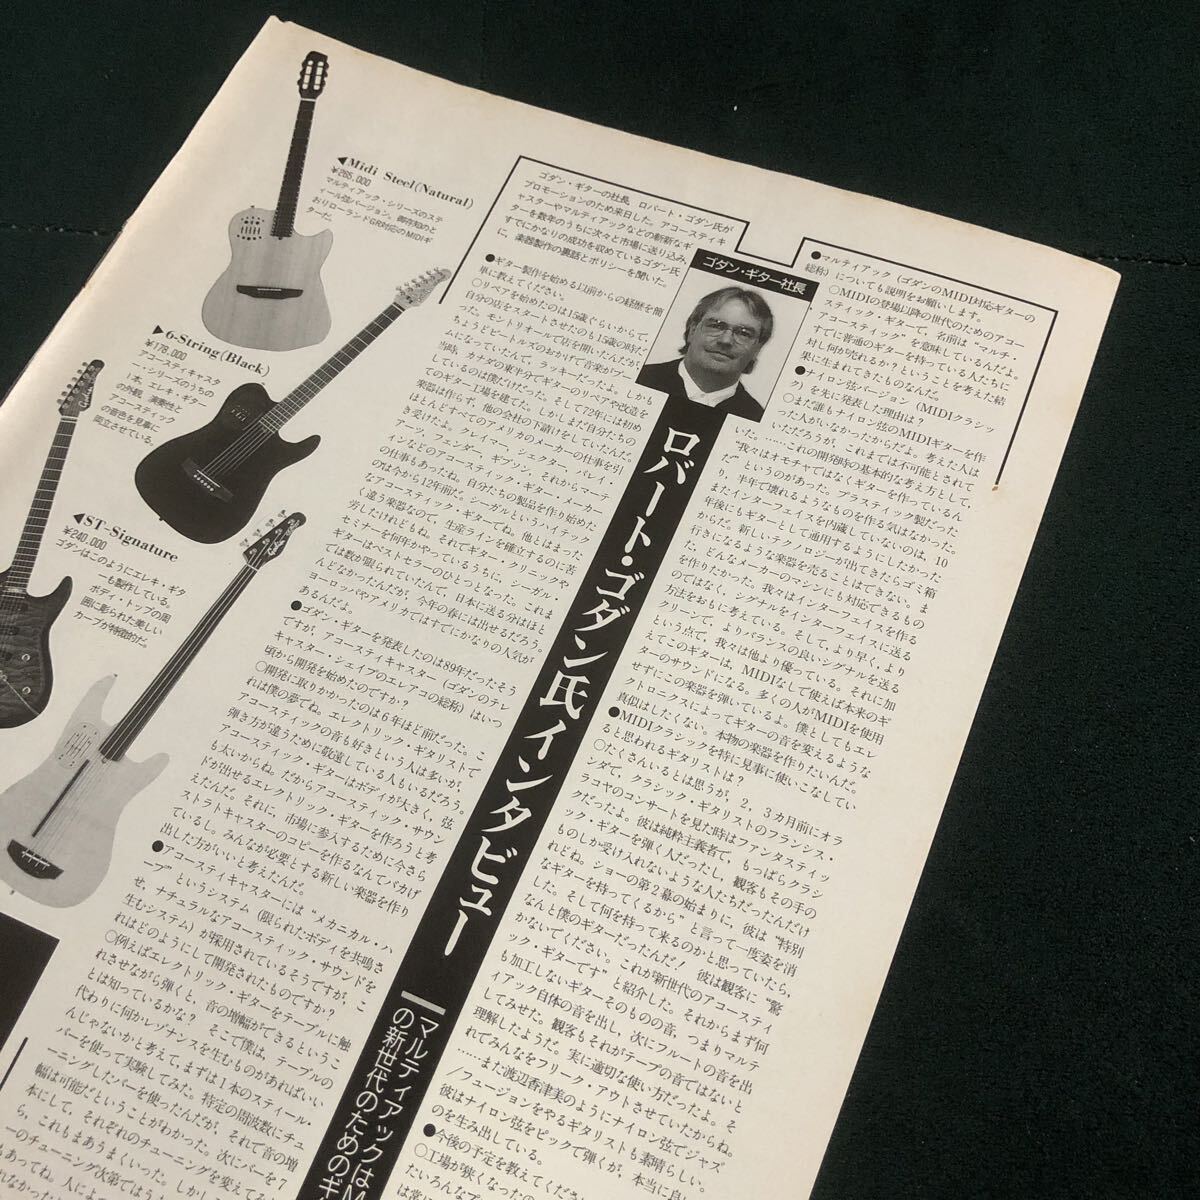 ◀Midi Steel(Natural)
¥265,000
マルティアック・シリーズのステ
ィール弦バージョン。御存知のと
おりローランドGR対応のMIDIギ
ターだ。
▶6-String(Black)
¥178,000
アコースティキャスタ
ー・シリーズのうちの
1本。エレキ・ギター
の外観、演奏性と
アコースティック
の音色を見事に
両立させている。
ST-Signature
¥240,000
ゴダンはこのようにエレキ・ギタ
ーも製作している。
ボディ・トップの周
囲に彫られた美しい
カーブが特徴的だ。
ゴダン・ギターの社長 ロバート・ゴダン氏が
プロモーションのため来日した。アコースティキ
ャスターやマルティアックなどの斬新なギ
ターを数年のうちに次々と市場に送り込み、
すでにかなりの成功を収めているゴダン氏
に、楽器製作の裏話とポリシーを聞いた。
ゴダン・ギター社長
ロバート・ゴダン氏インタビュー
マルティアックはM
の新世代のためのギ
●ギター製作を始める以前からの経歴を簡
単に教えてください。
○リペアを始めたのは15歳ぐらいからで、
自分の店をスタートさせたのも15歳の時だ
った。モントリオールで店を開いたんだが、
ちょうどビートルズのおかげで音楽がブー
ムになっていたんで、ラッキーだったよ。
当時、カナダの東半分でギターのリペアや改造を
しているのは僕だけだった。そして72年には初め
てのギター工場を建てた。しかしまだ自分たちの
楽器は作らず、他の会社の下請けをしていたんだ。
ほとんどすべてのアメリカのメーカーの仕事を引
き受けたよ。クレイマー、シェクター、パレイ・
アーツ、フェンダー、ギブソン、それからマーテ
ィンなどのアコースティック・ギター・メーカー
の仕事もあったね。自分たちの製品を作り始めた
のは今から12年前だ。シーガルというハイテック
なアコースティック・ギターでね。他とはまった
く違う楽器なので、生産ラインを確立するのに苦
労したけれどもね。それでギター・クリニックや
セミナーを何年かやっているうちに、シーガル・
ギターはベストセラーのひとつとなった。これま
では数が限られていたんで、日本に送る分はほと
んどなかったんだが、今年の春には出せるだろう。
ヨーロッパやアメリカではすでにかなりの人気が
あるんだよ。
●ゴダン・ギターを発表したのは89年だったそう
ですが、アコースティキャスター（ゴダンのテレ
キャスター・シェイプのエレアコの総称）はいつ
頃から開発を始めたのですか？
○開発に取りかかったのは6年ほど前だった。こ
れは僕の夢でね。エレクトリック・ギタリストで
アコースティックの音も好きという人は多いが、
弾き方が違うために敬遠している人もいるだろう。
アコースティック・ギターはボディが大きく、弦
も太いからね。だからアコースティック・サウン
ドが出せるエレクトリック・ギターを作ろうと考
えたんだ。それに、市場に参入するために今さら
ストラトキャスターのコピーを作るなんてバカげ
ているし。みんなが必要とする新しい楽器を作り
出した方がいいと考えたんだ。
●アコースティキャスターには“メカニカル・ハ
ープ”というシステム（限られたボディを共鳴さ
せ、ナチュラルなアコースティック・サウンドを
生むシステム）が採用されているそうですが、こ
れはどのようにして開発されたものですか？
○例えばエレクトリック・ギターをテーブルに触
れさせながら弾くと、音の増幅ができるというこ
とは知っているかな？ そこで僕は、テーブルの
代わりに何かレゾナンスを生むものがあればいい
んじゃないかと考えて、まずは1本のスティール・
バーを使って実験してみた。特定の周波数にチュ
ーニングしたバーを使ったんだが、それで音の増
幅は可能だということがわかった。次にバーを7
本にして、それぞれのチューニングを変えてみた
ら、これもまあうまくいった。
●マルティアック（ゴダンのMIDI対応ギターの
総称）についても説明をお願いします。
○MIDIの登場以降の世代のためのアコー
スティック・ギターで、名前は“マルチ・
アコースティック”を意味しているんだよ。
すでに普通のギターを持っている人たちに
対し何が売れるか？ということを考えた結
果に生まれてきたものなんだ。
●ナイロン弦バージョン（MIDIクラシッ
ク）を先に発表した理由は？
○まだ誰もナイロン弦のMIDIギターを作
った人がいなかったからだよ。考えた人は
いただろうが、これまでは不可能とされて
いた。……これの開発時の基本的な考え方として、
“我々はオモチャではなくギターを作っているん
だ”というのがあった。プラスティック製だった
り、半年で壊れるようなものを作る気はなかった。
またインターフェイスを内蔵していないのは、10
年後にもギターとして通用するようにしたかった
からだ。新しいテクノロジーが出てきたらゴミ箱
行きになるような楽器を売ることはできない。ま
た、どんなメーカーのマシンにも対応できるもの
を作りたかった。我々はインターフェイスを作る
のではなく、シグナルをインターフェイスに送る
方法をおもに考えている。そして、より早く、より
クリーンで、よりバランスの良いシグナルを送る
という点で、我々は他より優っている。それに加
えてこのギターは、MIDIなしで使えば本来のギ
ターのサウンドになる。多くの人がMIDIを使用
せずにこの楽器を弾いているよ。僕としてもエレ
クトロニクスによってギターの音を変えるような
真似はしたくない。本物の楽器を作りたいんだ。
●MIDIクラシックを特に見事に使いこなしてい
ると思われるギタリストは？
○たくさんいるとは思うが、2、3カ月前にオラ
ンダで、クラシック・ギタリストのフランシス・
ラコヤのコンサートを見た時はファンタスティッ
クだったよ。彼は純粋主義者で、もっぱらクラシ
ック・ギターを弾く人だったし、観客もその手の
ものしか受け入れないような人たちだったんだけ
れどね。ショーの第2幕の始まりに、彼は“特別
なギターを持ってくるから”と言って一度姿を消
した。そして何を持って来るのかと思っていたら、
なんと僕のギターだったんだ！ 彼は観客に“驚
かないでください。これが新世代のアコースティ
ック・ギターです”と紹介した。それからまず何
も加工しないギターそのものの音、つまりマルテ
ィアック自体の音を出し、次にフルートの音を出
してみせた。観客もそれがテープの音ではないと
理解したようだ。実に適切な使い方だったよ。そ
れでみんなをフリーク・アウトさせていたからね。
……また渡辺香津美のようにナイロン弦でジャズ
／フュージョンをやるギタリストも素晴らしい。
彼はナイロン弦をピックで弾くが、本当に良い
のを生み出している。
●今後の予定を教えてくださ
○工場が狭くなったの